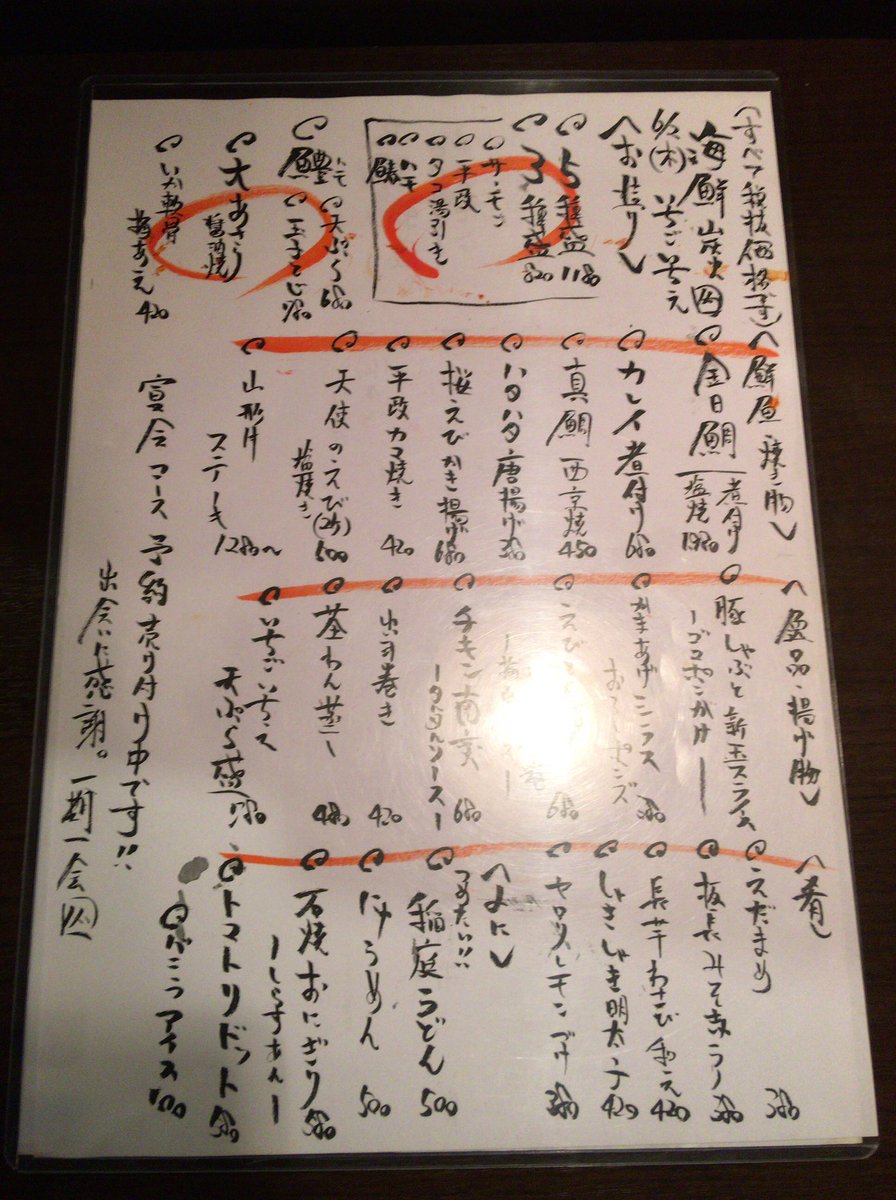 (すべて税抜価格です)
海鮮炭火
6/2(木) いちごいちえ
〈お造り〉
5種盛 1180
3種盛 820
サーモン
平政
タコ湯引き
ハモ
鱧
ハモ
天ぷら 680
玉子とじ 780
大あさり
醤油焼
いか軟骨
梅あえ 420
〈鮮魚・焼き物〉
金目鯛 煮付け
塩焼 1980
カレイ煮付け 680
真鯛西京焼 450
ハタハタ唐揚げ 380
桜えびかき揚 680
平政カマ焼き 420
天使のえび
塩焼き 500
山形牛
ステーキ 1280〜
〈逸品・揚げ物〉
豚しゃぶと新玉スライス
ーゴマポンかけー
かまあげシラス
おろしポンズ 380
えび
680
チキン南蛮
ータルタルソースー 680
出汁巻き 420
茶わん蒸し 480
いちごいちえ
天ぷら盛り 780
〈肴〉
えだまめ 380
板長みそ 380
長芋わさび和え 420
しゃきしゃき明太子 420
セロリレモンづけ 380
〈よに〉
つめたい!!
稲庭うどん 500
にゅうめん 500
石焼おにぎり
ーしらすあんー 580
トマトリゾット 580
アイス 100
宴会コース予約受け付け中です!!
出会いに感謝。一期一会